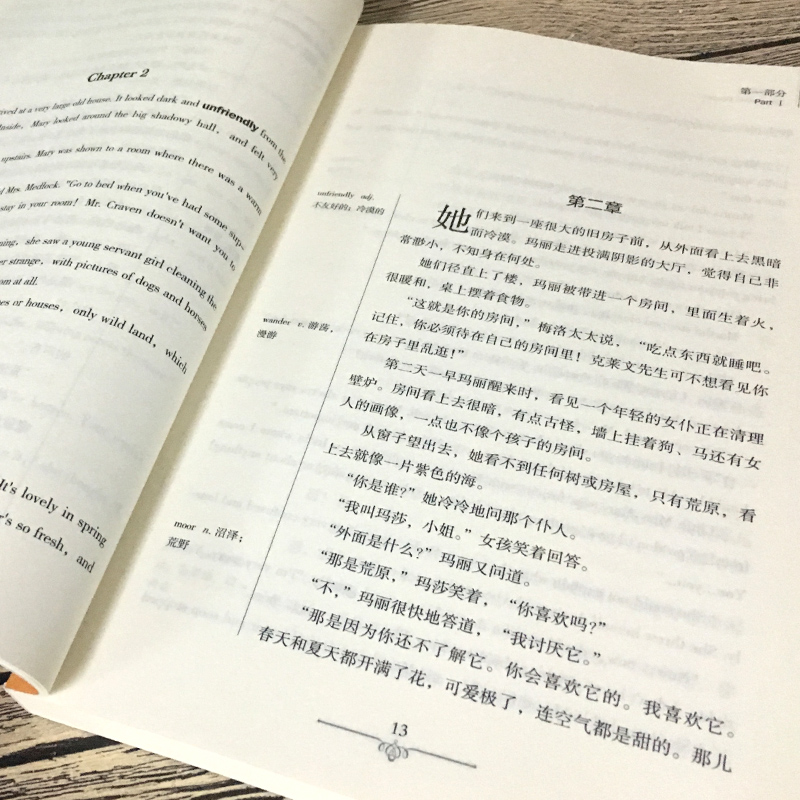 Chapter 2
ived at a very large old house. It looked dark and unfriendly from the
Inside, Mary looked around the big shadowy hall, and felt very
upstairs. Mary was shown to a room where there was a warm
Mrs. Medlock. "Go to bed when you've had some sup-
stay in your room! Mr. Craven doesn't want you to
ning, she saw a young servant girl cleaning the
er strange, with pictures of dogs and horses
om at all.
es or houses, only wild land, which
It's lovely in spring
r's so fresh, and
第一部分
Part 1
unfriendly adj.
不友好的；冷漠的
wander v. 游荡，
漫游
moor n. 沼泽；
荒野
第二章
她们来到一座很大的旧房子前，从外面看上去黑暗
而冷漠。玛丽走进投满阴影的大厅，觉得自己非
常渺小，不知身在何处。
她们径直上了楼，玛丽被带进一个房间，里面生着火，
很暖和，桌上摆着食物。
“这就是你的房间，”梅洛太太说，“吃点东西就睡吧。
记住，你必须待在自己的房间里！克莱文先生可不想看见你
在房子里乱逛！”
第二天一早玛丽醒来时，看见一个年轻的女仆正在清理
壁炉。房间看上去很暗，有点古怪，墙上挂着狗、马还有女
人的画像，一点也不像个孩子的房间。
从窗子望出去，她看不到任何树或房屋，只有荒原，看
上去就像一片紫色的海。
“你是谁？”她冷冷地问那个仆人。
“我叫玛莎，小姐。”女孩笑着回答。
“外面是什么？”玛丽又问道。
“那是荒原，”玛莎笑着，“你喜欢吗？”
“不，”玛丽很快地答道，“我讨厌它。”
“那是因为你还不了解它。你会喜欢它的。我喜欢它。
春天和夏天都开满了花，可爱极了，连空气都是甜的。那儿
13